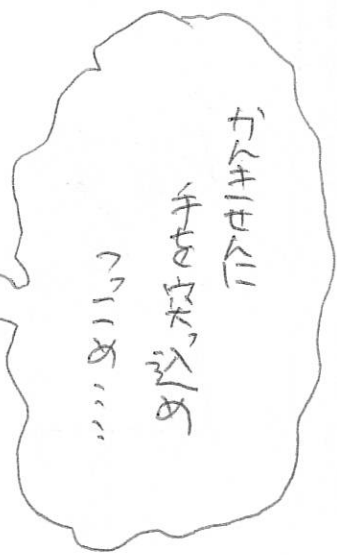 かんきせんに
手を突っ込め
つっこめ……